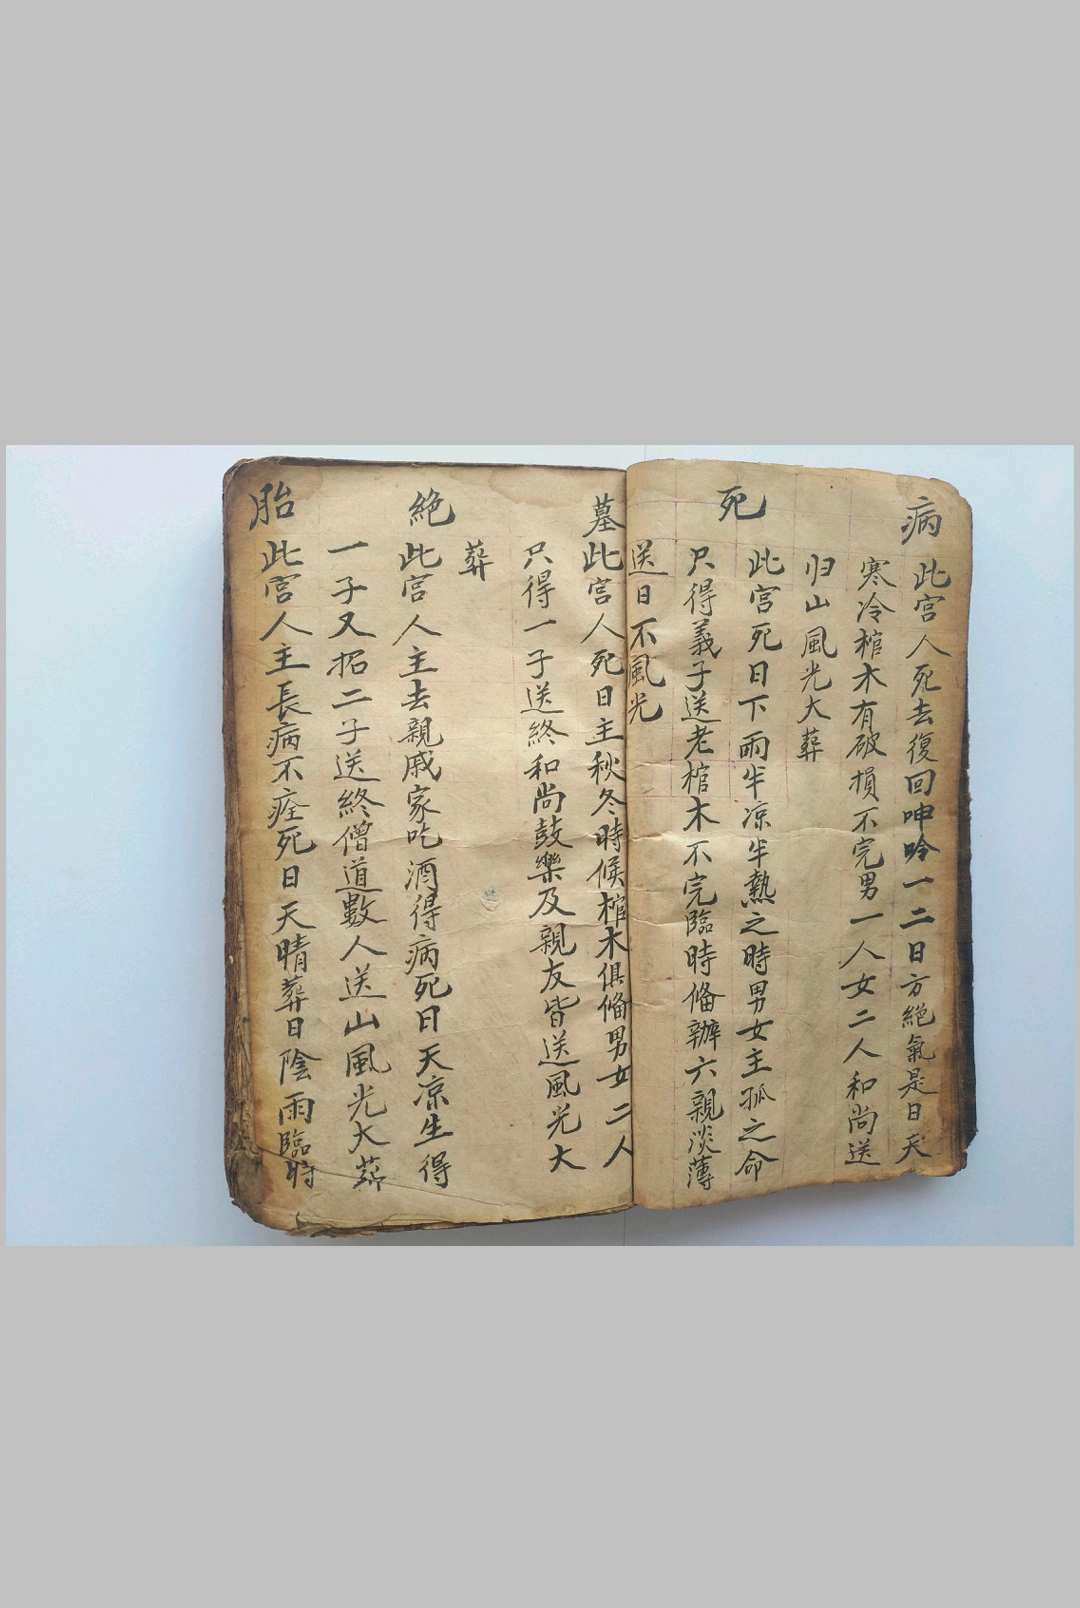 病
此宫人死去復回呻吟一二日方絕氣是日天
寒冷棺木有破損不完男一人女二人和尚送
归山風光大葬
死
此宫死日下雨半凉半熱之時男女主孤之命
只得義子送老棺木不完臨時俻辦六親淡薄
送日不風光
墓
此宫人死日主秋冬時候棺木俱俻男女二人
只得一子送終和尚鼓樂及親友皆送風光大
葬
絕
此宫人主去親戚家吃酒得病死日天凉生得
一子又招二子送終僧道數人送山風光大葬
胎
此宫人主長病不痊死日天晴葬日陰雨臨時